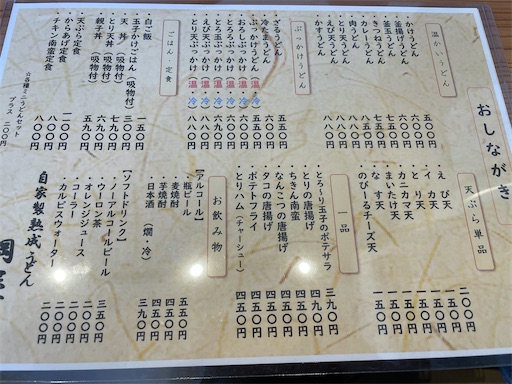 おしながき
温かいうどん
・かけうどん
・釜揚げうどん
・釜玉うどん
・きつねうどん
・肉うどん
・とり天うどん
・えび天うどん 八〇〇円
・かすうどん 八〇〇円
ぶっかけうどん
・ざるうどん 五五〇円
・冷たまうどん 六〇〇円
・ぶっかけうどん 温・冷 五五〇円
・おろしぶっかけ 温・冷 六〇〇円
・とろろぶっかけ 温・冷 六九〇円
・えび天ぶっかけ 温・冷 八〇〇円
・とり天ぶっかけ 温・冷 八〇〇円
ごはん 定食
・白ご飯 一五〇円
・玉子かけごはん（吸物付） 三〇〇円
・天丼（吸物付）
・とり天丼（吸物付） 六九〇円
・親子丼（吸物付）
・天ぷら定食
・からあげ定食 八〇〇円
・チキン南蛮定食 八〇〇円
☆各種ミニうどんセット
プラス 二〇〇円
天ぷら単品
・えび天 二〇〇円
・イカ天 一五〇円
・とり天 一五〇円
・カニカマ天 一五〇円
・まいたけ天 一五〇円
・なす天
・のびーるチーズ天
一品
・とろ～り玉子のポテサラ 三九〇円
・とりの唐揚げ
・ちきん南蛮 四五〇円
・なんこつの唐揚げ 四五〇円
・タコの唐揚げ 四五〇円
・ポテトフライ
・とりハム（チャーシュー） 四五〇円
お飲み物
【アルコール】
・瓶ビール 五五〇円
・麦焼酎 四五〇円
・芋焼酎 四五〇円
・日本酒（燗・冷） 三九〇円
【ソフトドリンク】
・ノンアルコールビール 三五〇円
・ウーロン茶 二〇〇円
・オレンジジュース 二〇〇円
・コーラ 二〇〇円
・カルピスウォーター 二〇〇円
自家製熟成うどん